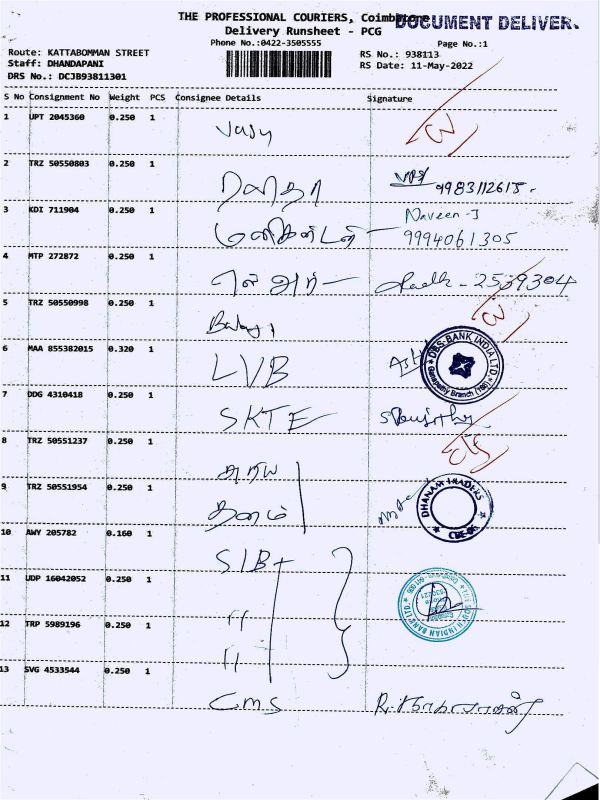 THE PROFESSIONAL COURIERS, Coimbatore
DOCUMENT DELIVER
Delivery Runsheet - PCG
Phone No.:0422-3505555
Page No.:1
Route: KATTABOMMAN STREET
RS No.: 938113
Staff: DHANDAPANI
RS Date: 11-May-2022
DRS No.: DCJB93811301
S No Consignment No Weight PCS Consignee Details Signature
1 UPT 2045360 0.250 1 Vasy
2 TRZ 50550803 0.250 1
9983112615.
3 KDI 711904 0.250 1 Naveen-J
9994061305
4 MTP 272872 0.250 1 என் அர் 2559304
5 TRZ 50550998 0.250 1
6 MAA 855382015 0.320 1 LVB
DBS BANK INDIA LTD
Ganapathy Branch (166)
7 DDG 4310418 0.250 1 SKTE
8 TRZ 50551237 0.250 1
9 TRZ 50551954 0.250 1
DHANAM TRADERS
CBE-06
10 AWY 205782 0.160 1 SIB
11 UDP 16042052 0.250 1 "
THE SOUTH INDIAN BANK LTD.
12 TRP 5989196 0.250 1 "
13 SVG 4533544 0.250 1 CMS